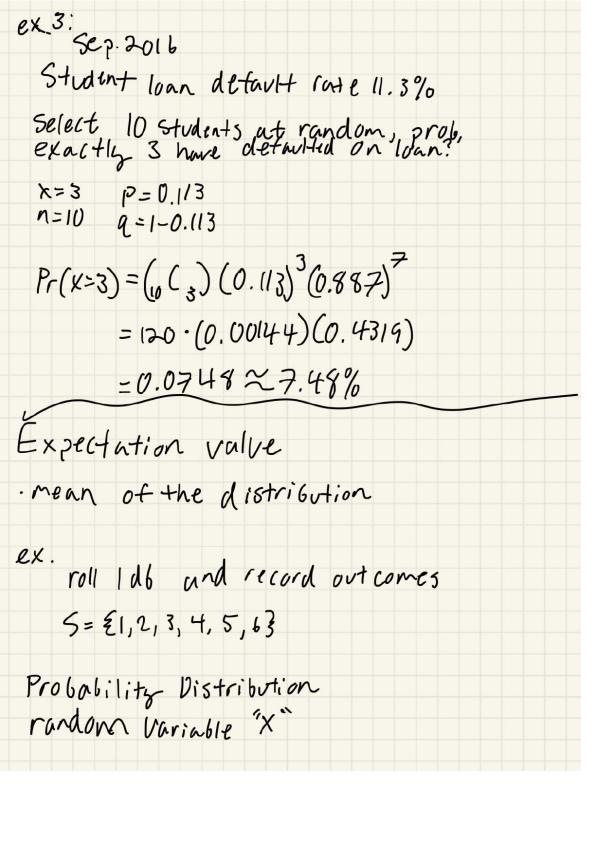 ex 3:
Sep. 2016
Student loan default rate 11.3%
Select 10 students at random, prob,
exactly 3 have defaulted on loan?
x=3 p=0.113
n=10 q=1-0.113
Pr(x=3) = (₁₀C₃)(0.113)³(0.887)⁷
= 120 · (0.00144)(0.4319)
= 0.0748 ≈ 7.48%
Expectation value
· mean of the distribution
ex.
roll 1d6 and record outcomes
S = {1, 2, 3, 4, 5, 6}
Probability Distribution
random variable "X"